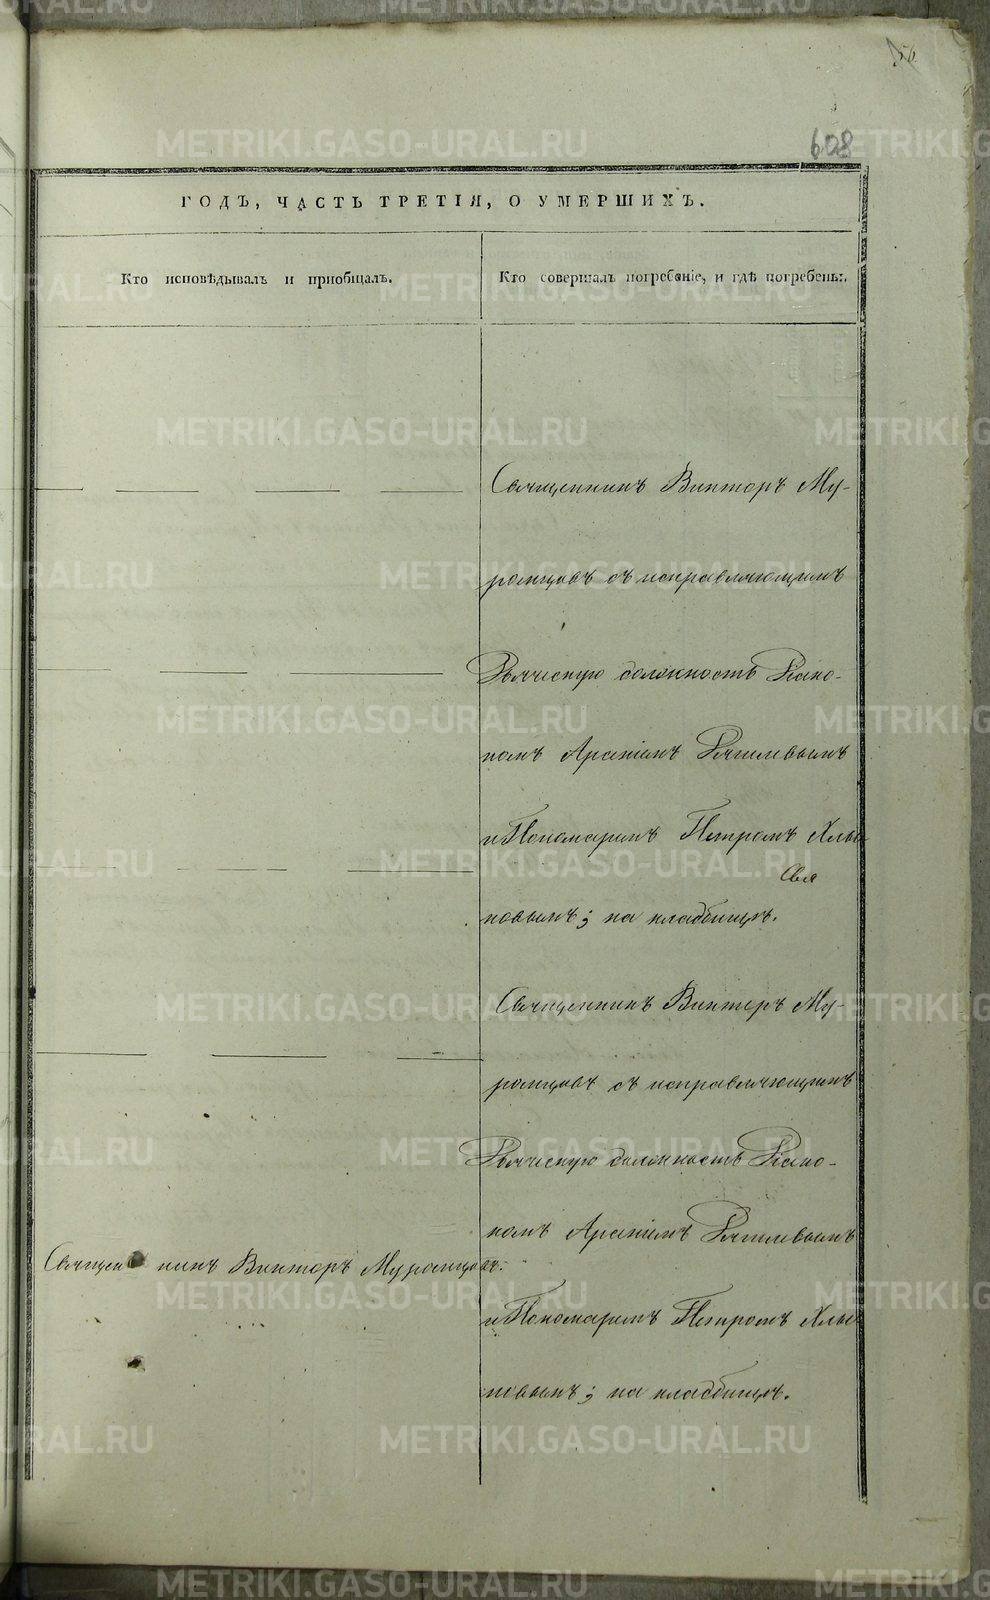 608
ГОДЪ, ЧАСТЬ ТРЕТІЯ, О УМЕРШИХЪ.
Кто исповѣдывалъ и приобщалъ.
Кто совершалъ погребеніе, и гдѣ погребены.
Священникъ Викторъ Му-
ромцовъ съ исправляющимъ
Дьяческую должность Диако-
номъ Арсеніемъ
и Пономаремъ Петромъ Хлы
новымъ; на кладбищѣ.
Священникъ Викторъ Му-
ромцовъ съ исправляющимъ
Дьяческую должность Диако-
номъ Арсеніемъ
и Пономаремъ Петромъ Хлы
новымъ; на кладбищѣ.
Священникъ Викторъ Муромцовъ.
METRIKI.GASO-URAL.RU